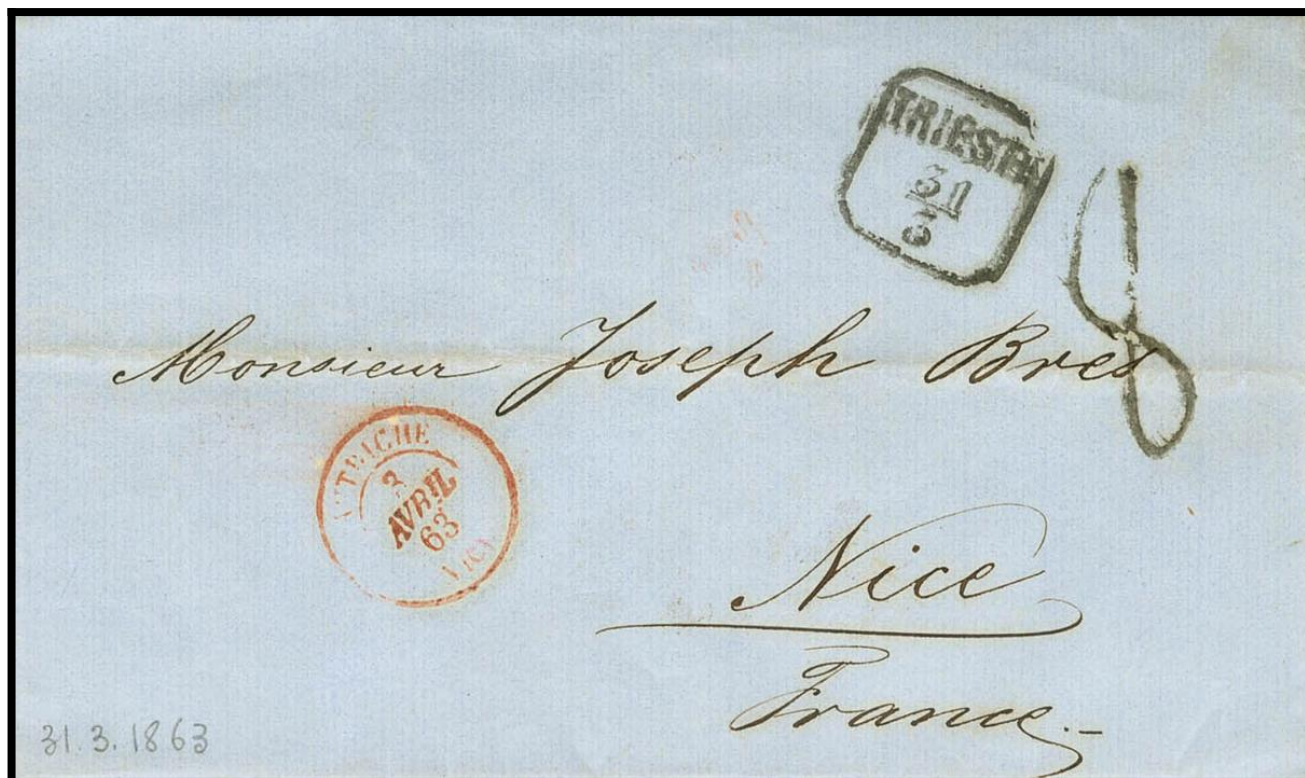 TRIESTE
31
3
8
Monsieur Joseph Brès
AUTRICHE
3
AVRIL
63
NICE
Nice
France.-
31.3.1863